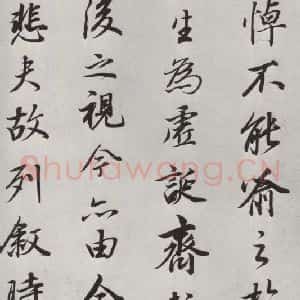 悼不能喻之於
生為虛誕齊
後之視今亦由今
悲夫故列敘時
Shufawang.CN